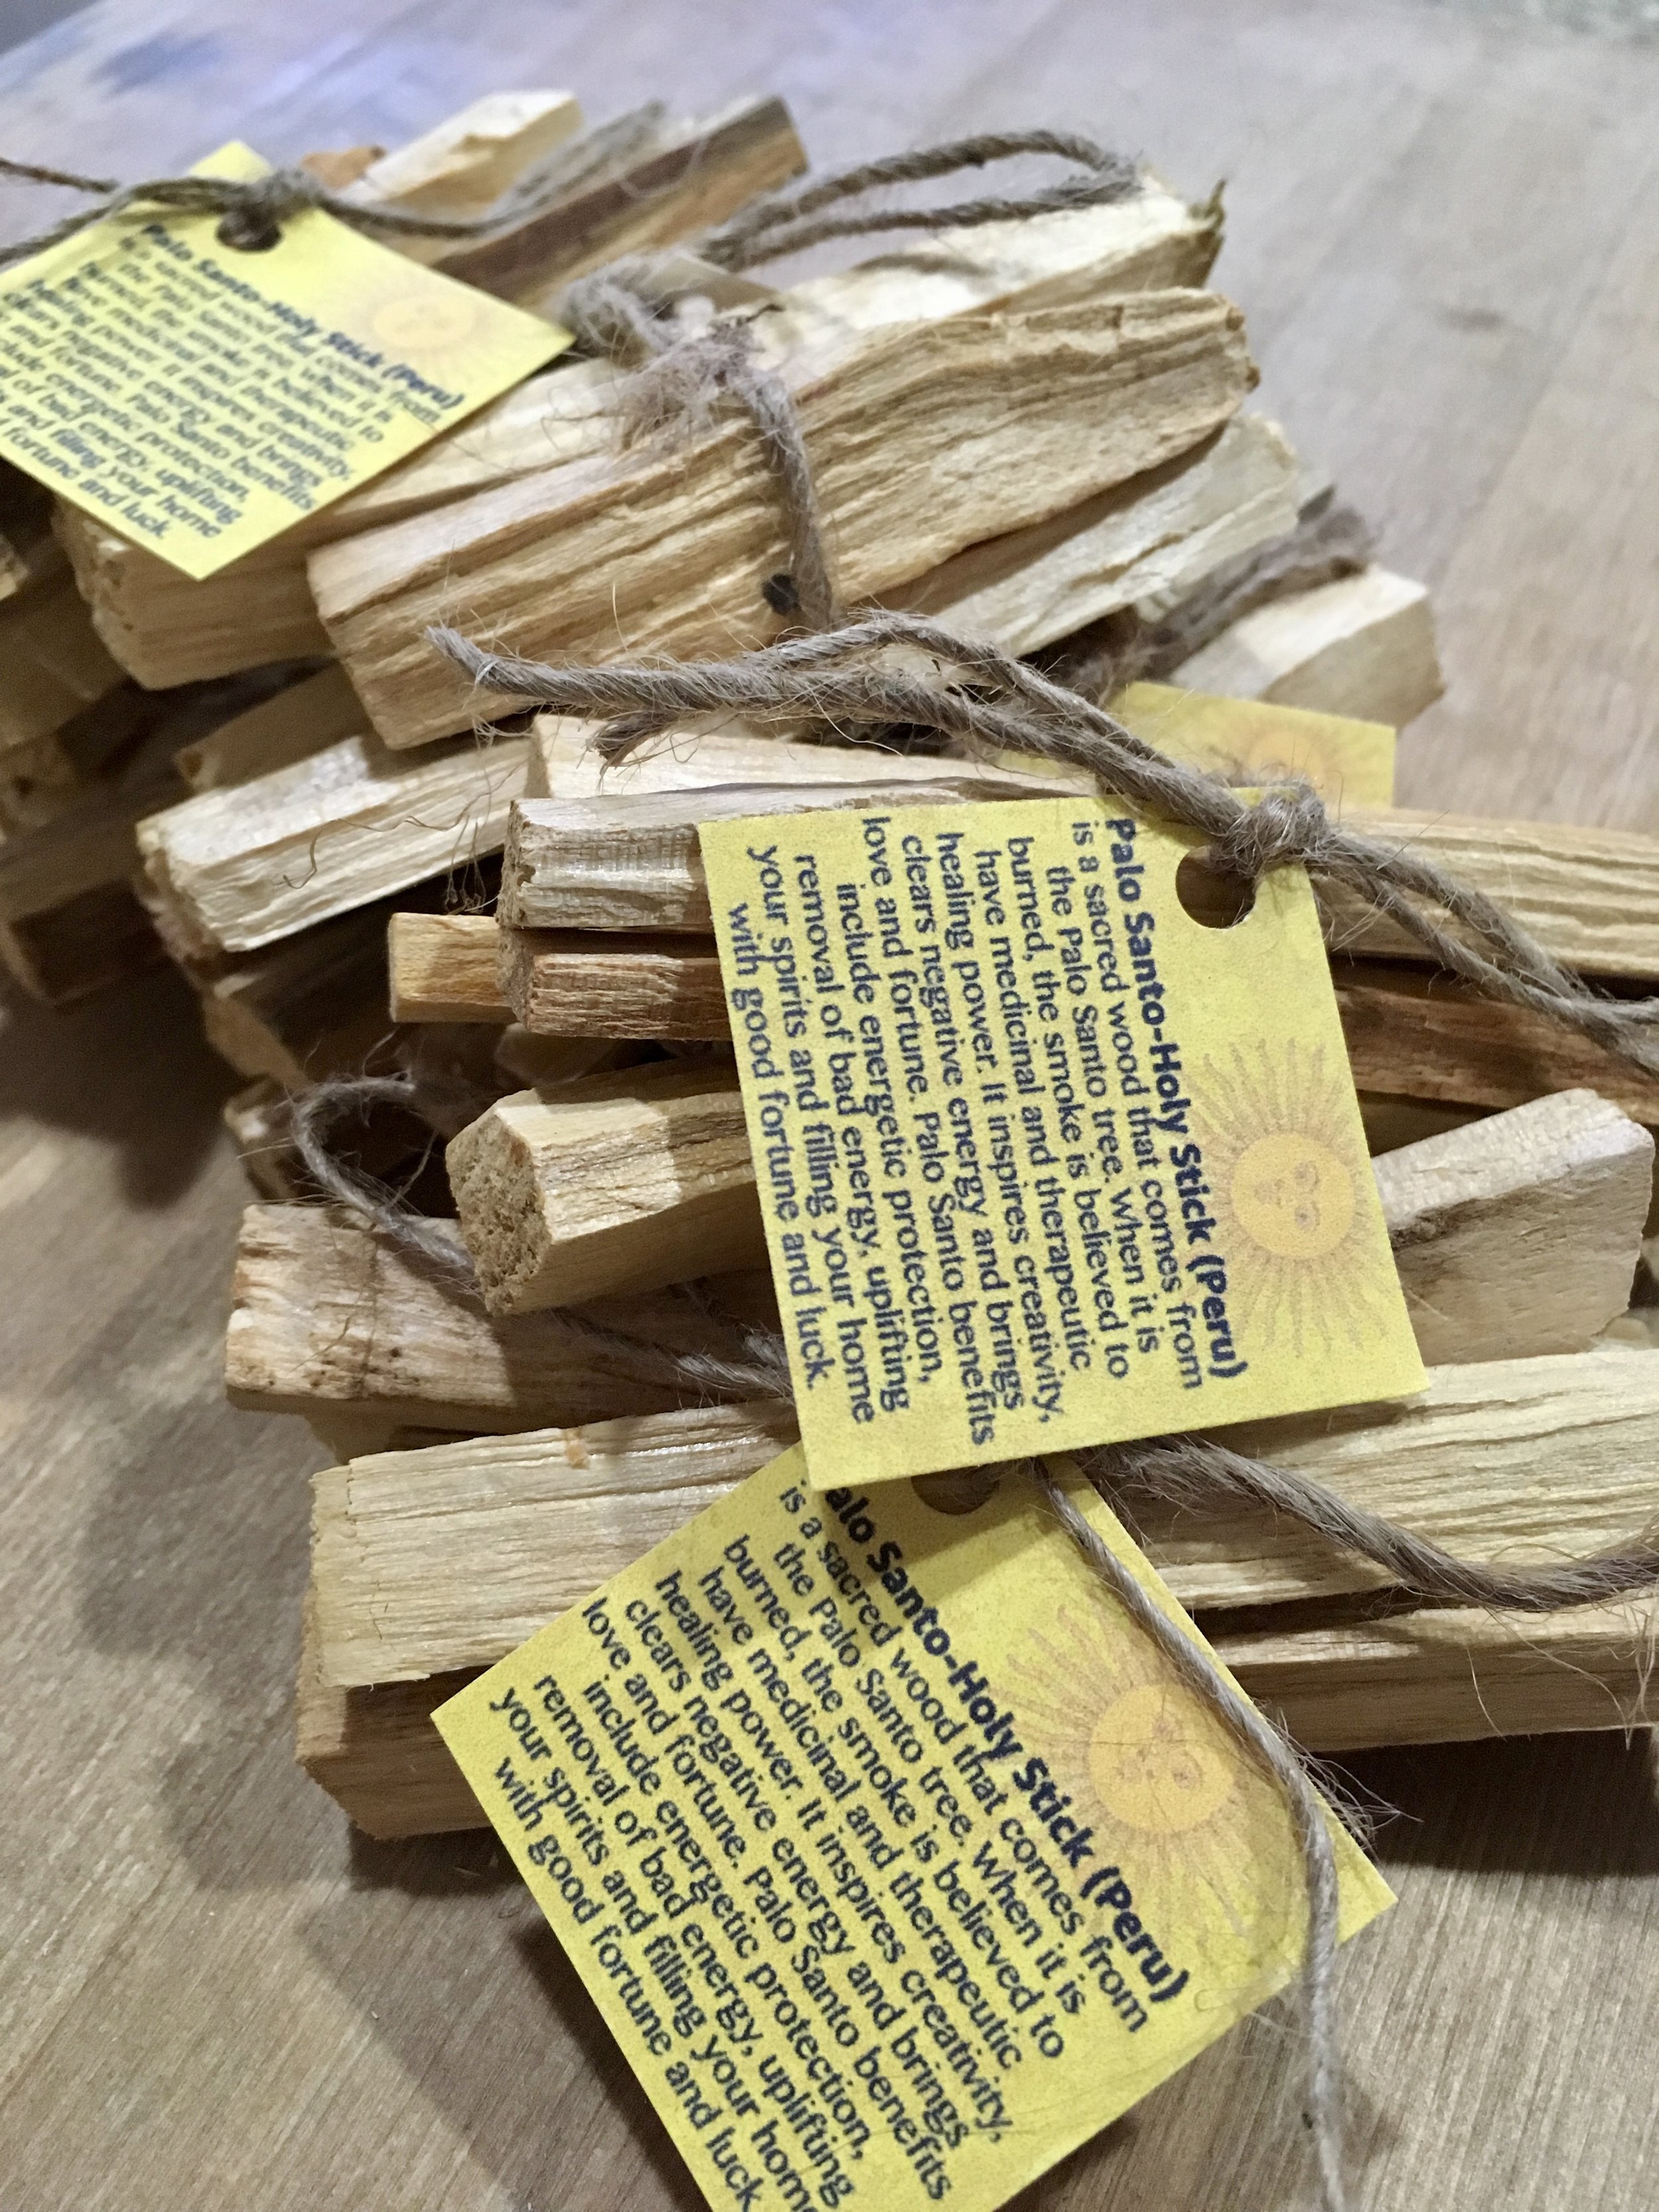 Palo Santo-Holy Stick (Peru)
is a sacred wood that comes from
the Palo Santo tree. When it is
burned, the smoke is believed to
have medicinal and therapeutic
healing power. It inspires creativity,
clears negative energy and brings
love and fortune. Palo Santo benefits
include energetic protection,
removal of bad energy, uplifting
your spirits and filling your home
with good fortune and luck.
Palo Santo-Holy Stick (Peru)
is a sacred wood that comes from
the Palo Santo tree. When it is
burned, the smoke is believed to
have medicinal and therapeutic
healing power. It inspires creativity,
clears negative energy and brings
and fortune. Palo Santo benefits
energetic protection,
of bad energy, uplifting
and filling your home
fortune and luck.
alo Santo-Holy Stick (Peru)
is a sacred wood that comes from
the Palo Santo tree. When it is
burned, the smoke is believed to
have medicinal and therapeutic
healing power. It inspires creativity,
clears negative energy and brings
love and fortune. Palo Santo benefits
include energetic protection,
removal of bad energy, uplifting
your spirits and filling your home
with good fortune and luck